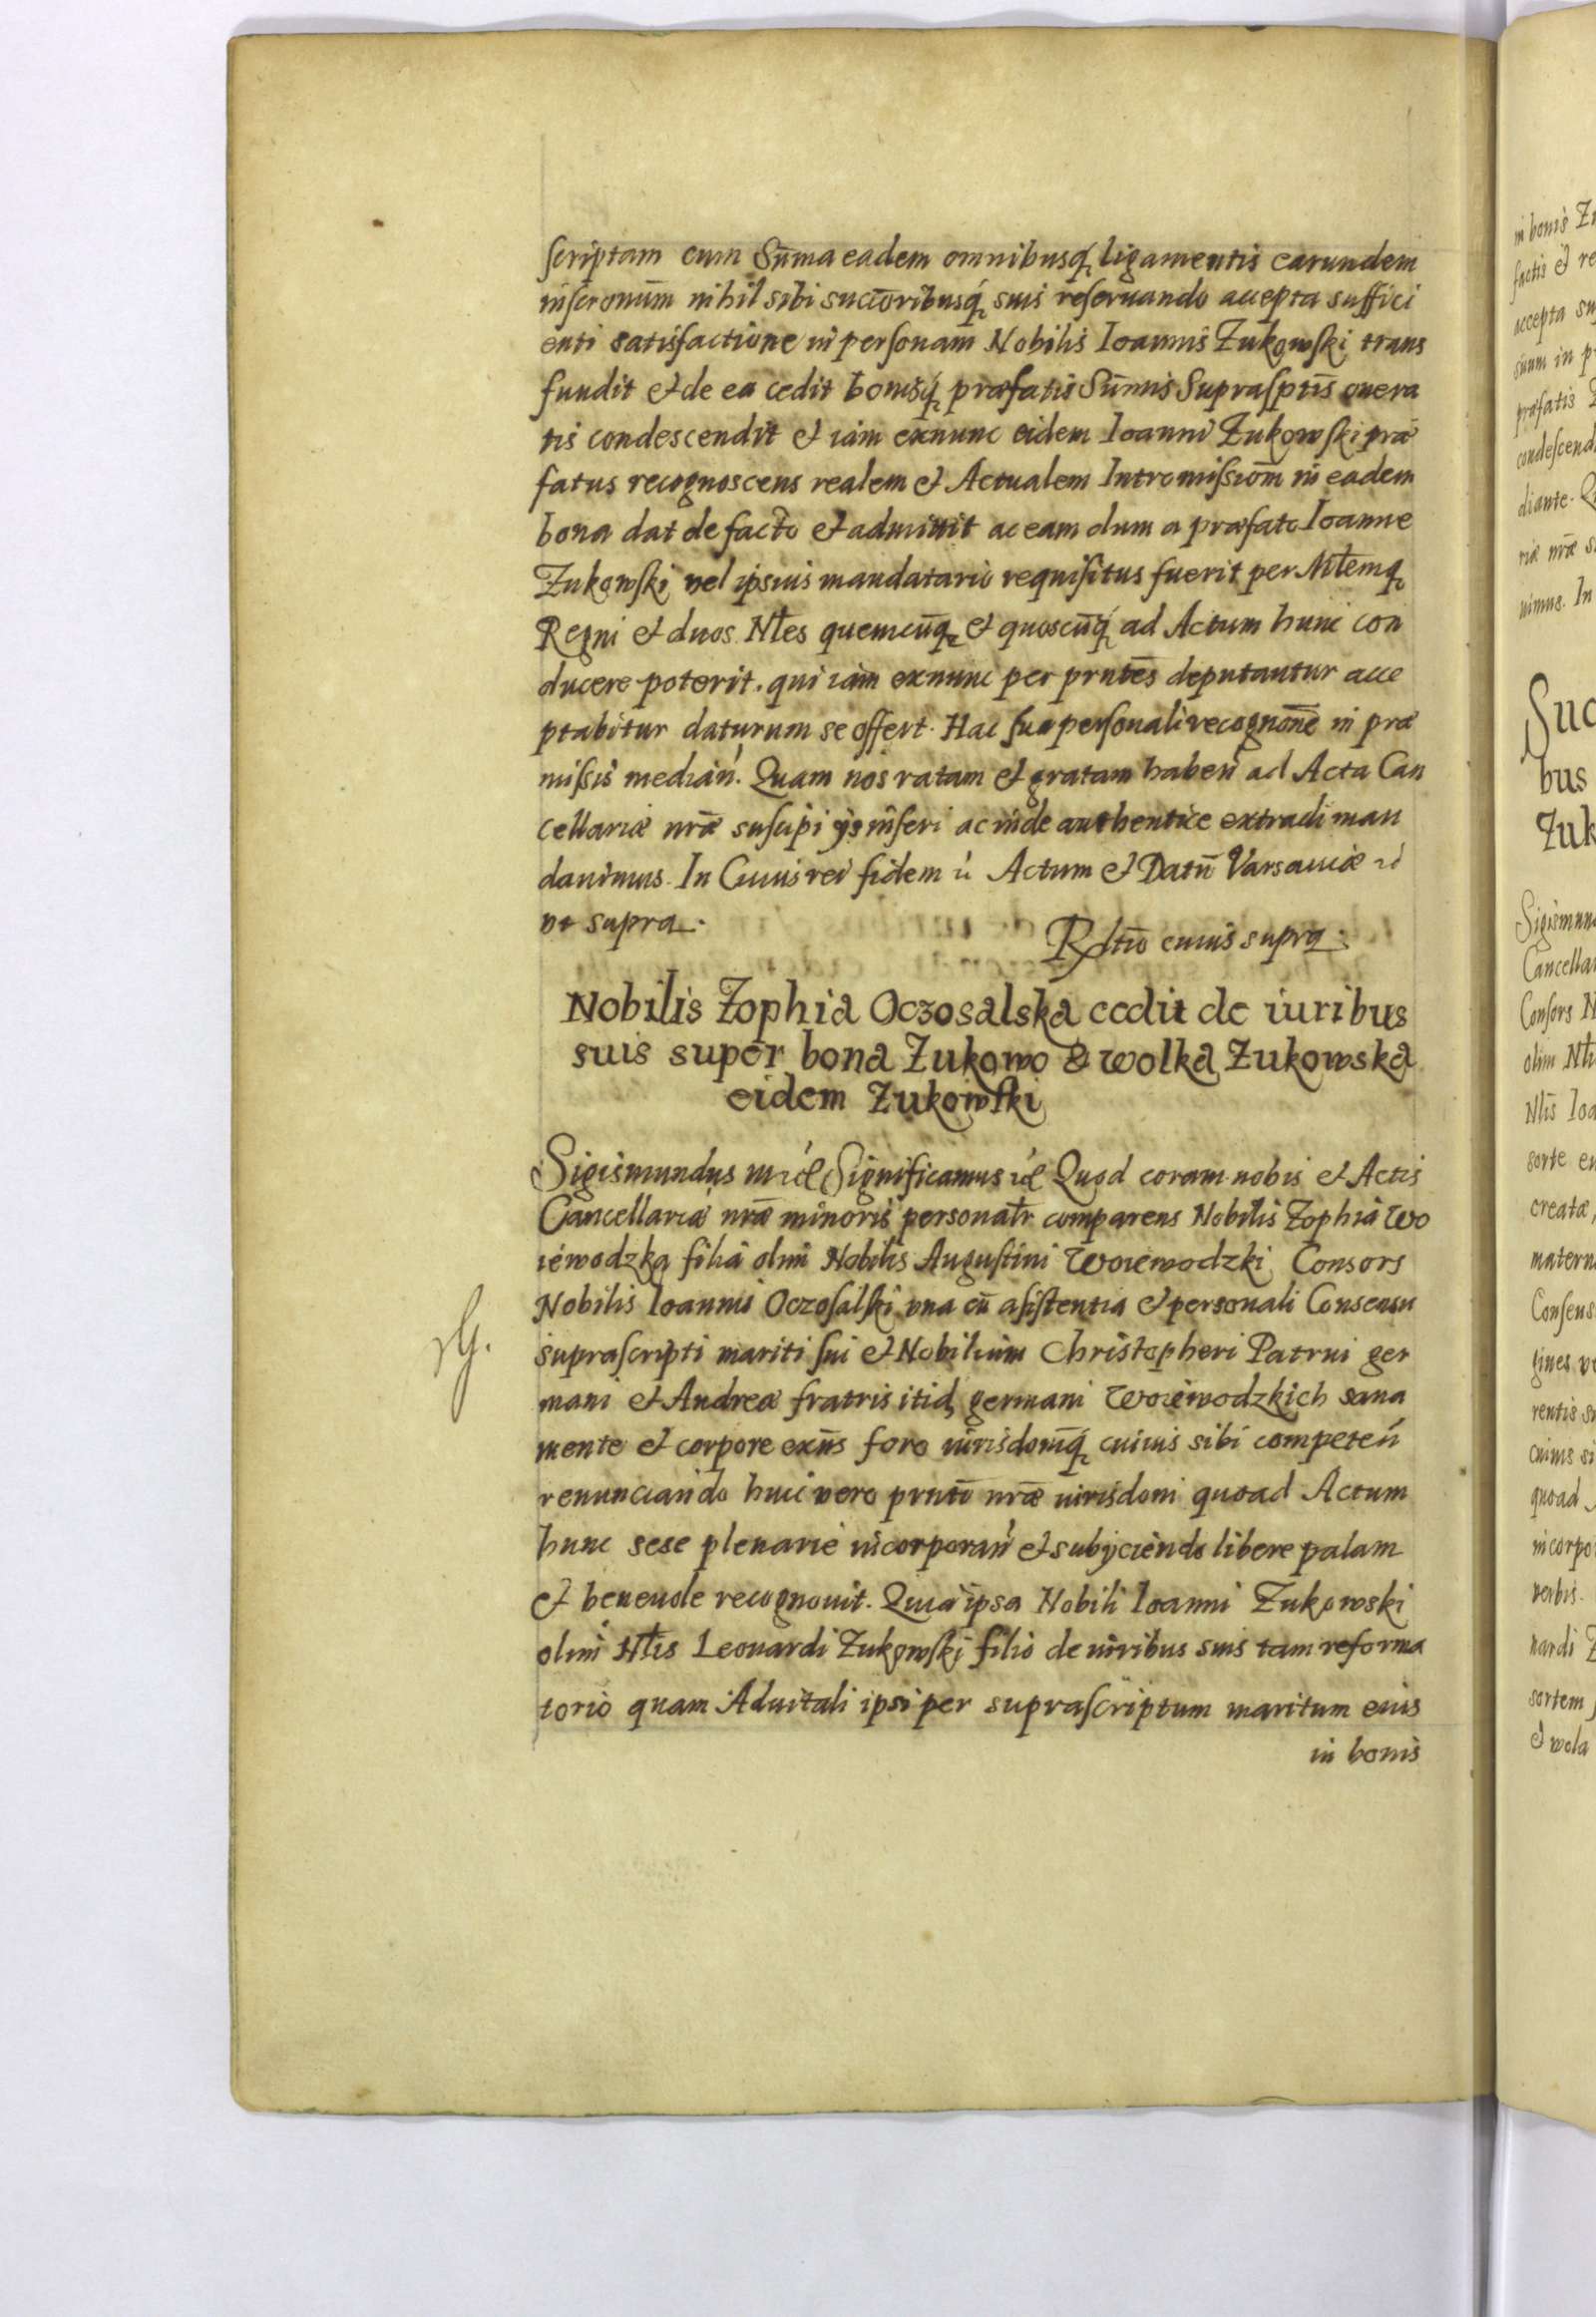 scriptam cum Sum̄a eadem omnibusq́ȝ ligamentis earundem
inscr̄onum nihil sibi succ̄oribusq́ȝ suis reseruando accepta suffici
enti satisfactione in personam Nobilis Ioannis Żukowski trans
fundit et de ea cedit bonisq́ȝ præfatis Sum̄is Suprasptīs onera
tis condescendit et iam exnunc eidem Ioanni Żukowski præ
fatus recognoscens realem et Actualem Intromissiom̄ in eadem
bona dat de facto et admittit ac eam dum a præfato Ioanne
Żukowski vel ipsius mandatario requisitus fuerit per Mīlemqȝ
Regni et duos Nłes quemcūqȝ et quoscūq́ȝ ad Actum hunc con
ducere poterit. qui iam exnunc per prntēs deputantur acce
ptabitur daturum se offert. Hac sua personali recognōne in præ
missis median̄. Quam nos ratam et gratam haben̄ ad Acta Can
cellariæ nr̄æ suscipi ijs inseri ac inde authentice extradi man
dauimus. In Cuius rei fidem ꝛć Actum et Datū Varsauiæ ꝛć
vt supra.
Rłtio cuius supra.
Nobilis Zophia Oczosalska cedit de iuribus
suis super bona Żukowo & Wolka Żukowska
eidem Żukowski
Sigismundus III ꝛć Significamus ꝛć Quod coram nobis et Actis
Cancellariæ nr̄æ minoris personałr comparens Nobilis Zophia Wo
iewodzka filia olim Nobilis Augustini Woiewodzki Consors
Nobilis Ioannis Oczosalski vna cū asistentia et personali Consensu
suprascripti mariti sui et Nobilium Christopheri Patrui ger
mani et Andreæ fratris itid germani Woiewodzkich sana
mente et corpore exn̄s foro iurisdom̄q́ȝ cuiuis sibi competen̄
renunciando huic vero prntī nr̄æ iurisdoni quoad Actum
hunc sese plenarie incorporan̄ et subijciendo libere palam
et beneuole recognouit. Quia ipsa Nobili Ioanni Żukowski
olim Nłis Leonardi Żukowski filio de iuribus suis tam reforma
torio quam Aduitali ipsi per suprascriptum maritum eius
in bonis